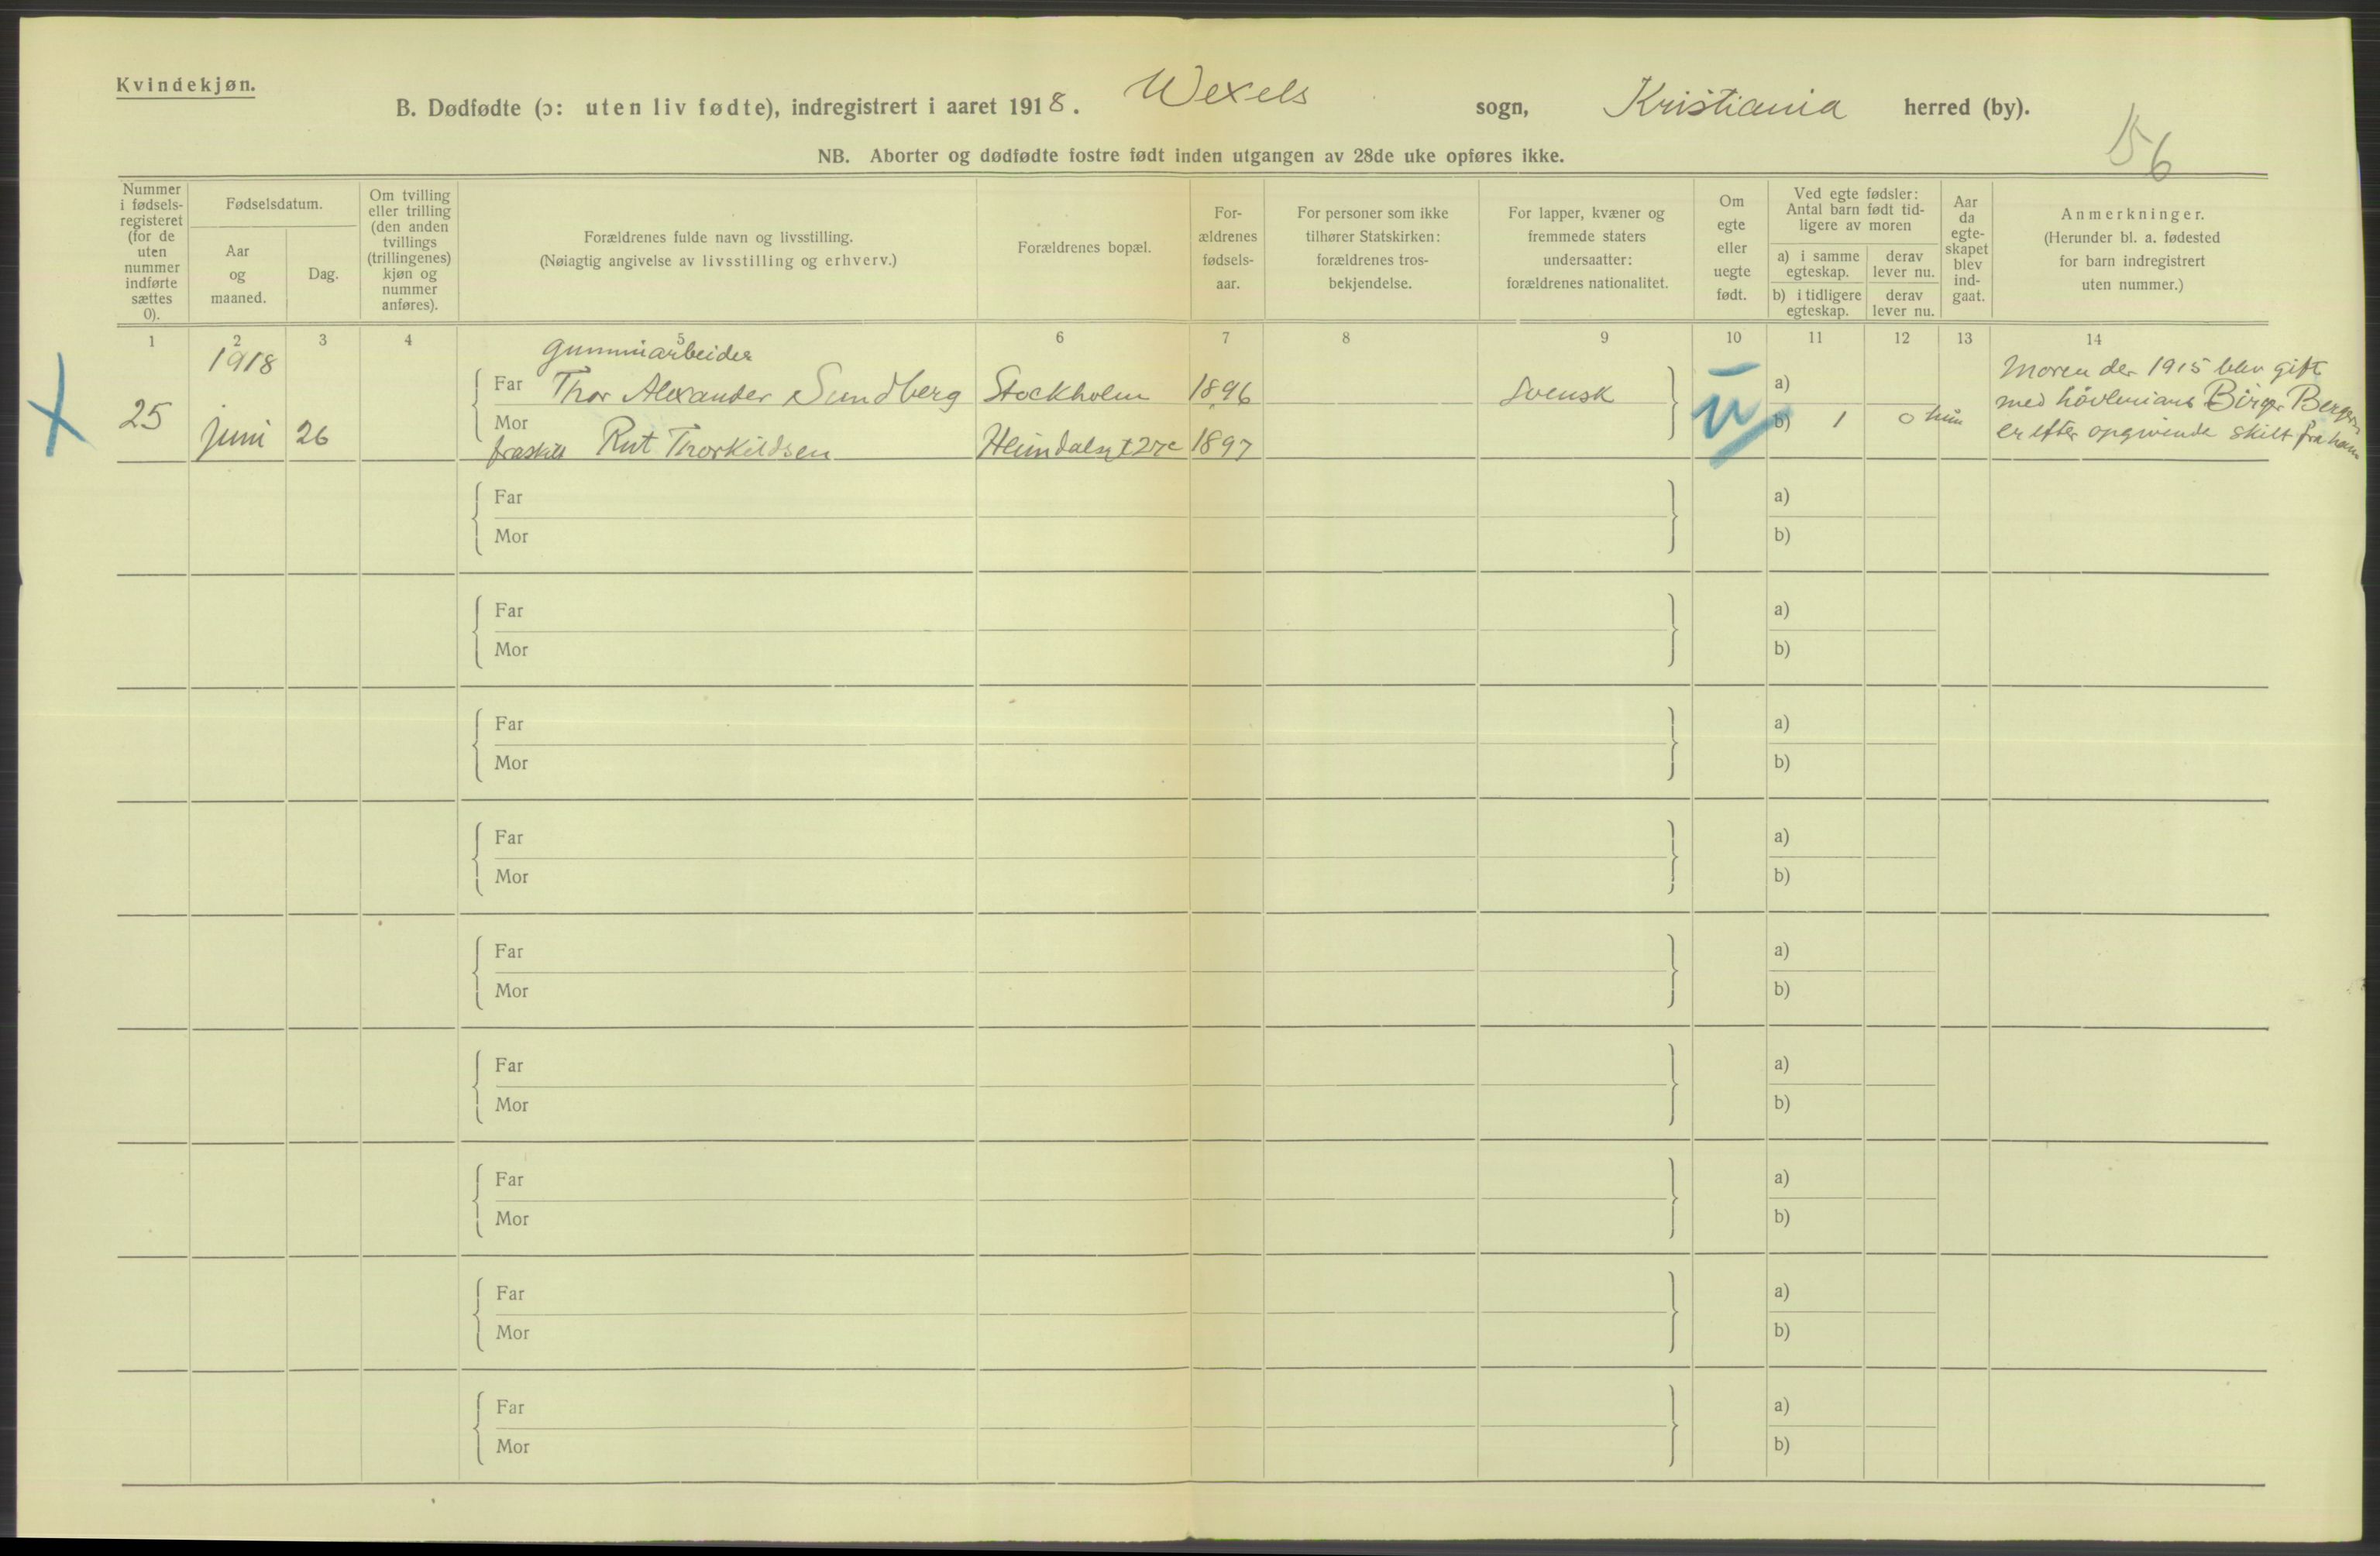 Kvindekjøn.
B. Dødfødte (ɔ: uten liv fødte), indregistrert i aaret 1918. Wexels sogn, Kristiania herred (by).
156
NB. Aborter og dødfødte fostre født inden utgangen av 28de uke opføres ikke.
Nummer
i fødsels-
registeret
(for de
uten
nummer
indførte
sættes
0).
Fødselsdatum.
Aar
og
maaned.
Dag.
Om tvilling
eller trilling
(den anden
tvillings
(trillingenes)
kjøn og
nummer
anføres).
Forældrenes fulde navn og livsstilling.
(Nøiagtig angivelse av livsstilling og erhverv.)
Forældrenes bopæl.
For-
ældrenes
fødsels-
aar.
For personer som ikke
tilhører Statskirken:
forældrenes tros-
bekjendelse.
For lapper, kvæner og
fremmede staters
undersaatter:
forældrenes nationalitet.
Om
egte
eller
uegte
født.
Ved egte fødsler:
Antal barn født tid-
ligere av moren
a) i samme
egteskap.
derav
lever nu.
b) i tidligere
egteskap.
derav
lever nu.
Aar
da
egte-
skapet
blev
ind-
gaat.
Anmerkninger.
(Herunder bl. a. fødested
for barn indregistrert
uten nummer.)
1 2 3 4 5 6 7 8 9 10 11 12 13 14
25
1918
juni 26
gummiarbeider
Far Thor Alexander Sundberg Stockholm 1896 Svensk
Mor
fraskilt Rut Thorkildsen Heimdalsgt 27c 1897
u
a)
b) 1 0
Moren der 1915 blev gift
med Birger
hun er efter opgivende skilt fra ham
Far a)
Mor b)
Far a)
Mor b)
Far a)
Mor b)
Far a)
Mor b)
Far a)
Mor b)
Far a)
Mor b)
Far a)
Mor b)
Far a)
Mor b)
Far a)
Mor b)